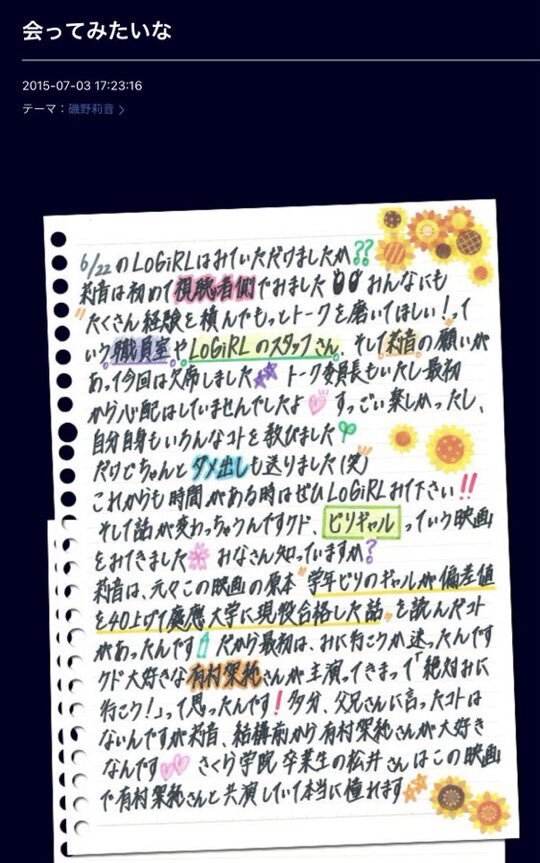 会ってみたいな
2015-07-03 17:23:16
テーマ：磯野莉音 >
6/22のLoGiRLはみていただけましたか??
莉音は初めて視聴者側でみました みんなにも
"たくさん経験を積んでもっとトークを磨いてほしい！って
いう職員室やLoGiRLのスタッフさん、そして莉音の願いが
あって今回は欠席しました トーク委員長もいたし最初
から心配はしていませんでしたよ すっごい楽しかったし、
自分自身もいろんなコトを学びました
だけどちゃんとダメ出しも送りました(笑)
これからも時間がある時はぜひLoGiRLみて下さい!!
そして話が変わっちゃうんですケド、ビリギャルっていう映画
をみてきました みなさん知っていますか?
莉音は、元々この映画の原本"学年ビリのギャルが偏差値
を40上げて慶應大学に現役合格した話"を読んだコト
があったんです だから最初は、みに行こうか迷ったんです
ケド大好きな有村架純さんが主演ってきまって「絶対みに
行こう！」って思ったんです！多分、父兄さんに言ったコトは
ないんですが莉音、結構前から有村架純さんが大好き
なんです さくら学院 卒業生の松井さんはこの映画
で有村架純さんと共演していて本当に憧れます